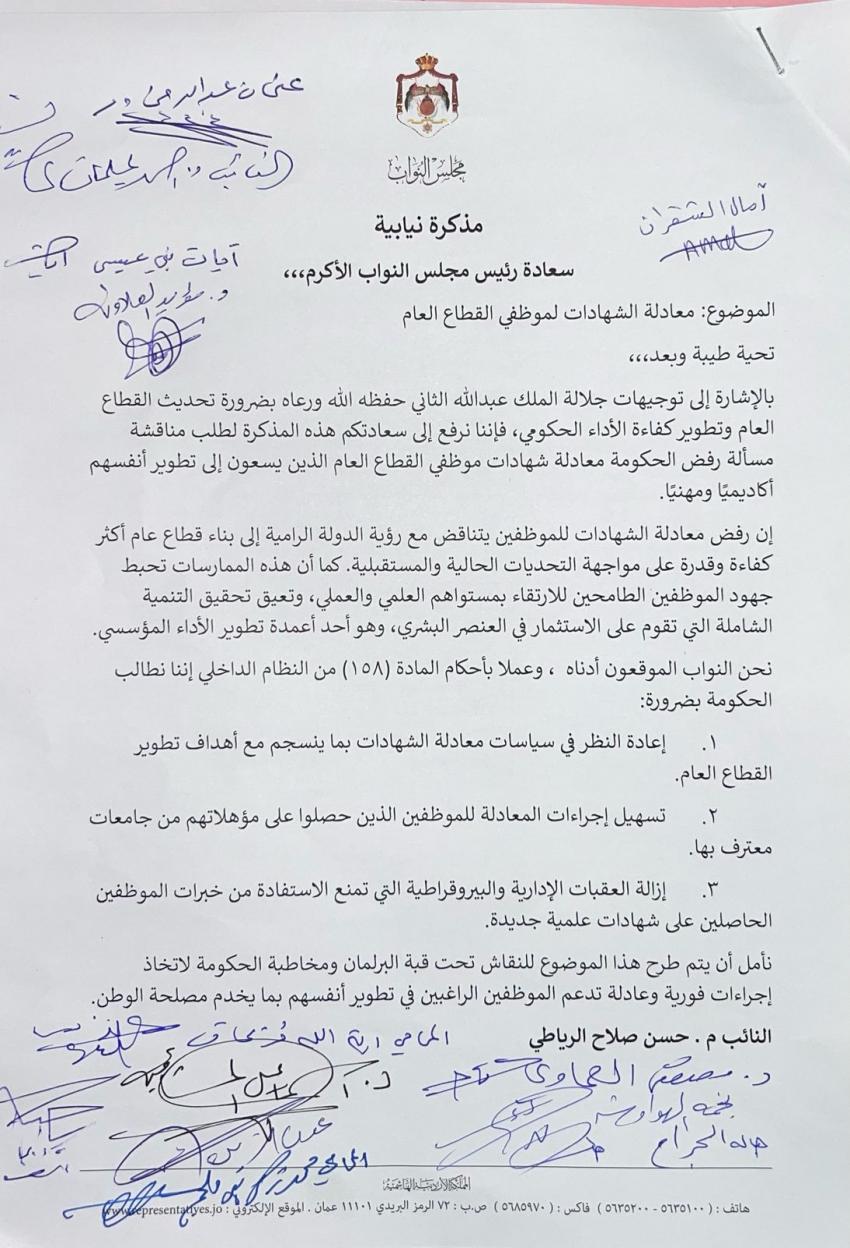 مجلس النواب
آمال الشقران
Amal
مذكرة نيابية
آيات بني عيسى
سعادة رئيس مجلس النواب الأكرم،،،
الموضوع: معادلة الشهادات لموظفي القطاع العام
تحية طيبة وبعد،،،
بالإشارة إلى توجيهات جلالة الملك عبدالله الثاني حفظه الله ورعاه بضرورة تحديث القطاع
العام وتطوير كفاءة الأداء الحكومي، فإننا نرفع إلى سعادتكم هذه المذكرة لطلب مناقشة
مسألة رفض الحكومة معادلة شهادات موظفي القطاع العام الذين يسعون إلى تطوير أنفسهم
أكاديميًا ومهنيًا.
إن رفض معادلة الشهادات للموظفين يتناقض مع رؤية الدولة الرامية إلى بناء قطاع عام أكثر
كفاءة وقدرة على مواجهة التحديات الحالية والمستقبلية. كما أن هذه الممارسات تحبط
جهود الموظفين الطامحين للارتقاء بمستواهم العلمي والعملي، وتعيق تحقيق التنمية
الشاملة التي تقوم على الاستثمار في العنصر البشري، وهو أحد أعمدة تطوير الأداء المؤسسي.
نحن النواب الموقعون أدناه ، وعملا بأحكام المادة (١٥٨) من النظام الداخلي إننا نطالب
الحكومة بضرورة:
١. إعادة النظر في سياسات معادلة الشهادات بما ينسجم مع أهداف تطوير
القطاع العام.
٢. تسهيل إجراءات المعادلة للموظفين الذين حصلوا على مؤهلاتهم من جامعات
معترف بها.
٣. إزالة العقبات الإدارية والبيروقراطية التي تمنع الاستفادة من خبرات الموظفين
الحاصلين على شهادات علمية جديدة.
نأمل أن يتم طرح هذا الموضوع للنقاش تحت قبة البرلمان ومخاطبة الحكومة لاتخاذ
إجراءات فورية وعادلة تدعم الموظفين الراغبين في تطوير أنفسهم بما يخدم مصلحة الوطن.
النائب م . حسن صلاح الرياطي
هاله الجراح
المملكة الأردنية الهاشمية
هاتف : ( ٥٦٣٥١٠٠ - ٥٦٣٥٢٠٠ ) فاكس : ( ٥٦٨٥٩٧٠ ) ص.ب : ٧٢ الرمز البريدي ١١١٠١ عمان . الموقع الإلكتروني : www.representatives.jo